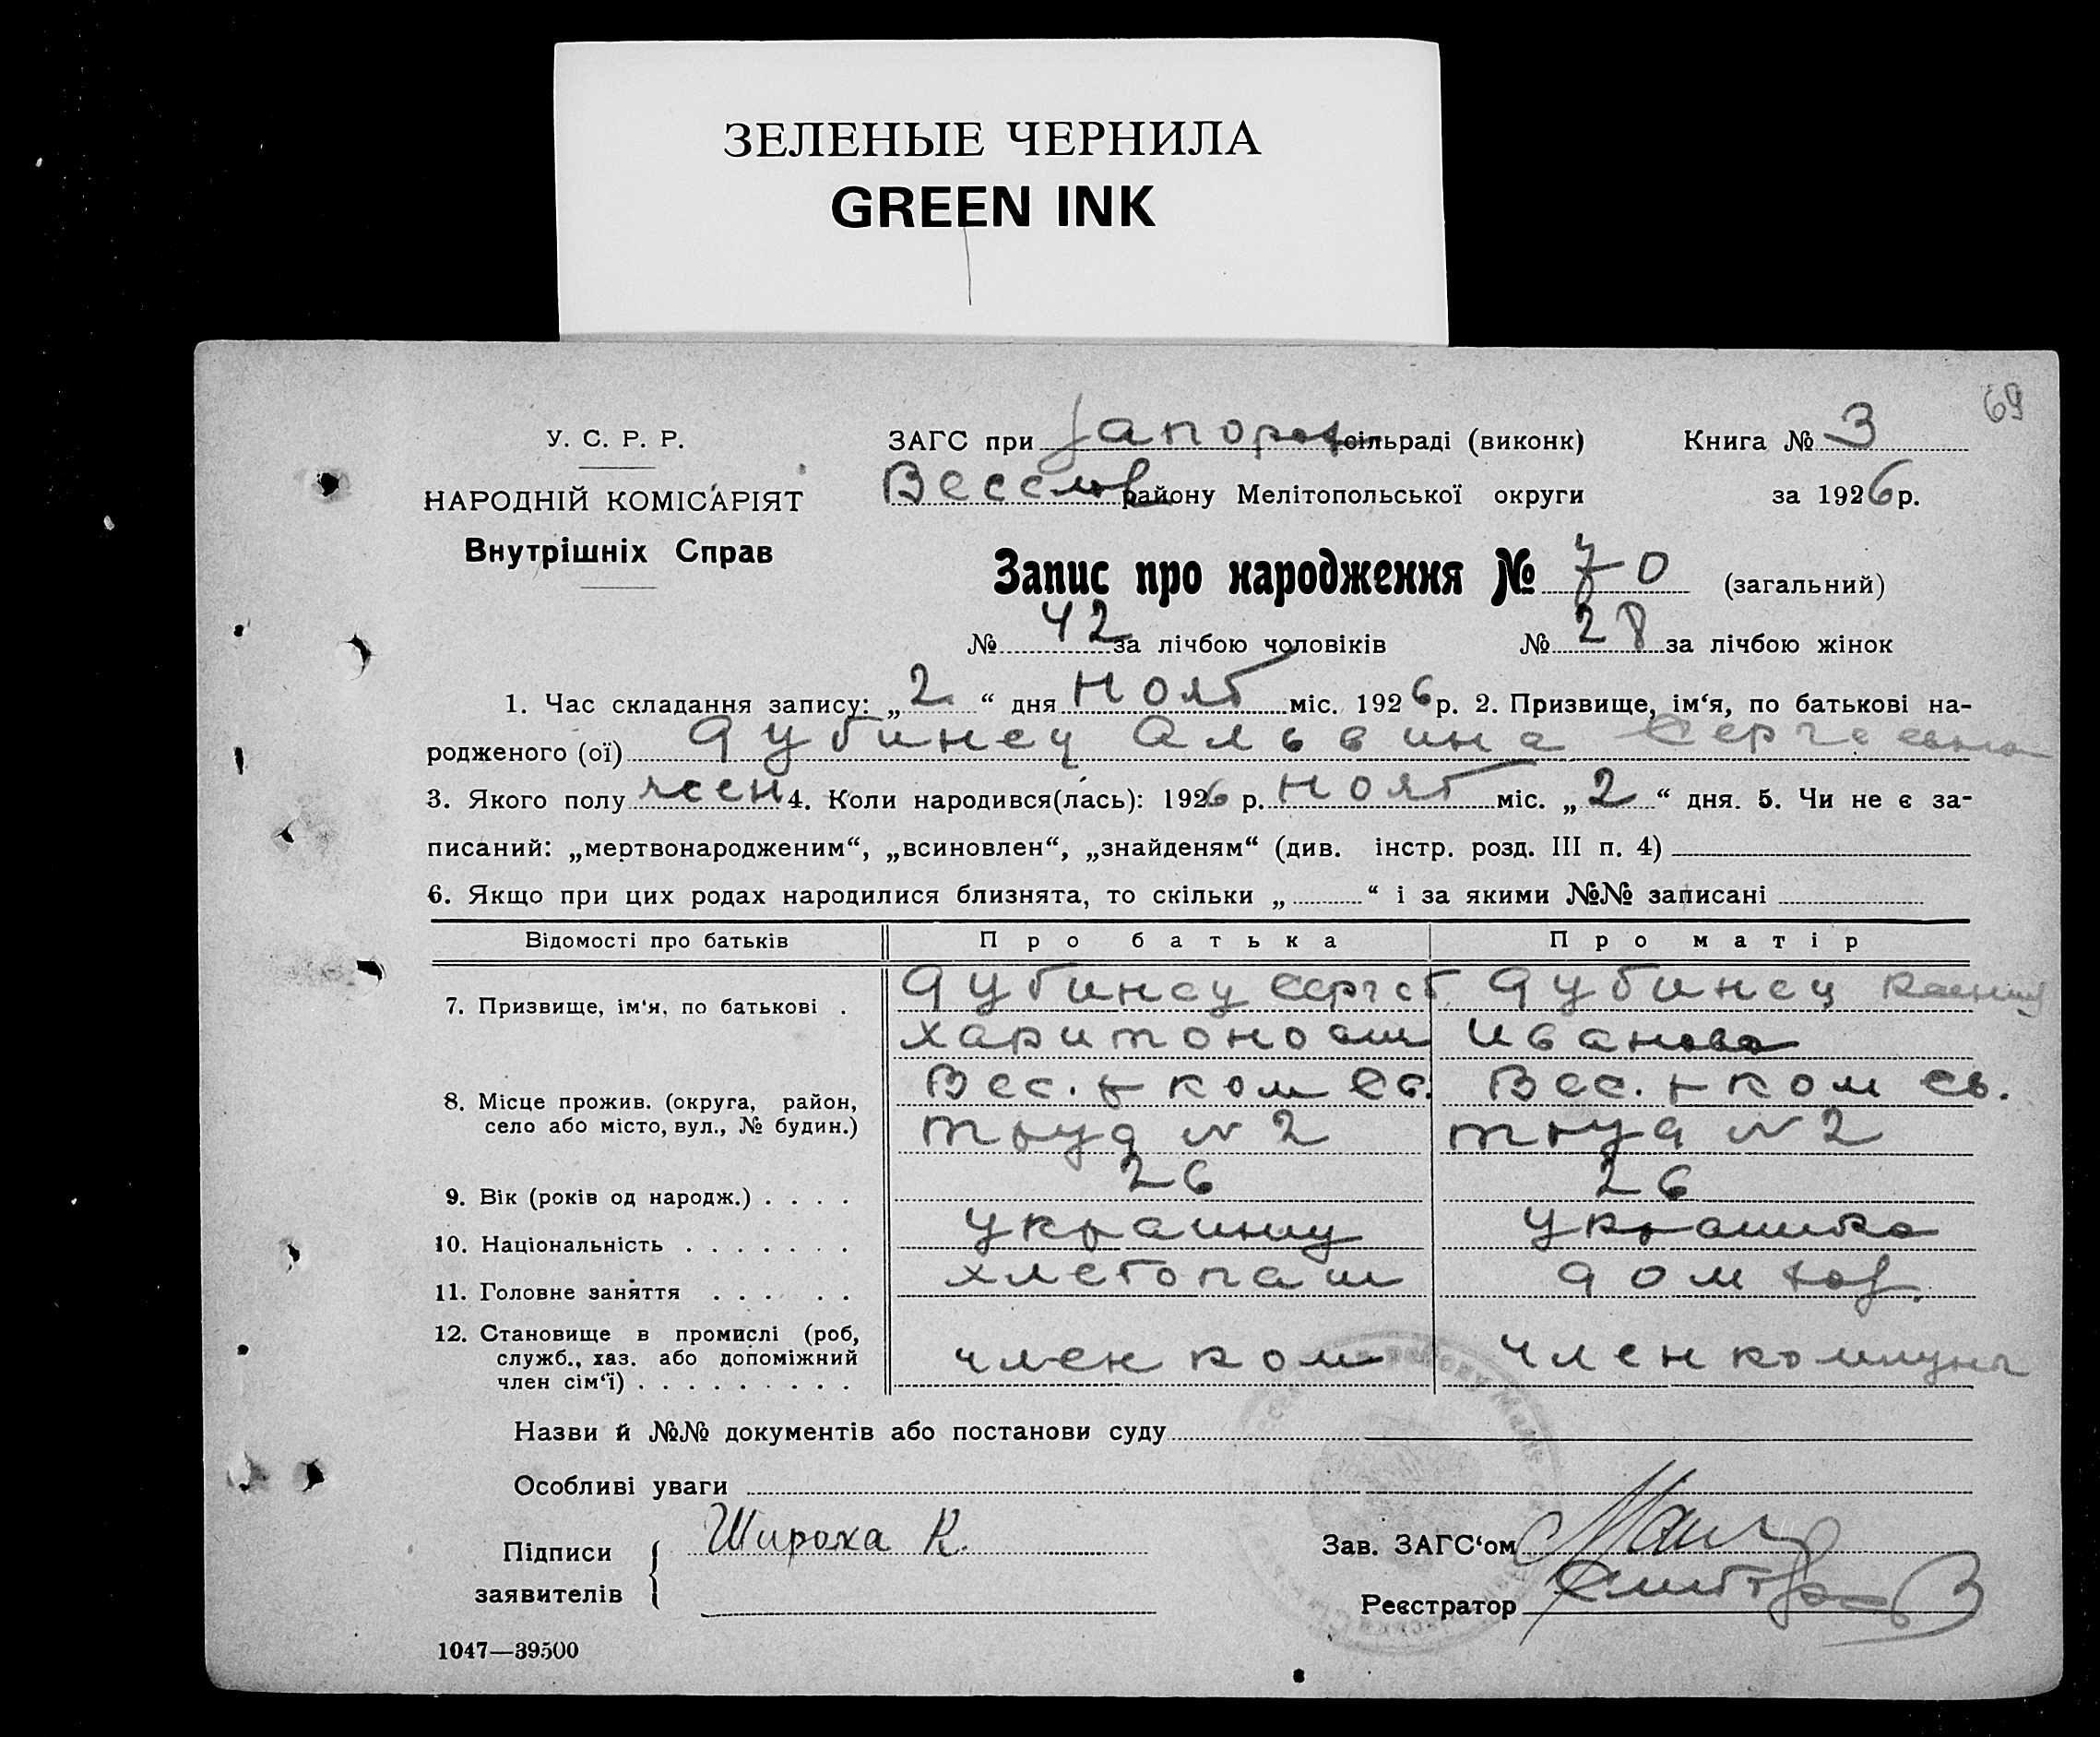 ЗЕЛЕНЫЕ ЧЕРНИЛА
GREEN INK
69
У. С. Р. Р.
НАРОДНІЙ КОМІСАРІЯТ
Внутрішніх Справ
ЗАГС при Запорож сільраді (виконк) Книга № 3
Весело району Мелітопольської округи за 1926 р.
Запис про народження № 70 (загальний)
№ 42 за лічбою чоловіків № 28 за лічбою жінок
1. Час складання запису: „2“ дня Нояб міс. 1926 р. 2. Призвище, ім‘я, по батькові на-
родженого (ої) Дубинец Альвина Сергеевна
3. Якого полу жен 4. Коли народився(лась): 1926 р. Нояб міс. „2“ дня. 5. Чи не є за-
писаний: „мертвонародженим“, „всиновлен“, „знайденям“ (див. інстр. розд. III п. 4)
6. Якщо при цих родах народилися близнята, то скільки „ “ і за якими №№ записані
Відомості про батьків Про батька Про матір
7. Призвище, ім‘я, по батькові . Дубинец Сергей Дубинец
Харитонови Иванова
8. Місце прожив. (округа, район, село або місто, вул., № будин.) Вес. р ком Св. Вес. р ком Св.
труд N 2 труд N 2
9. Вік (років од народж.) . . . . 26 26
10. Національність . . . . . . . украинц украинка
11. Головне заняття . . . . . хлебопаш дом хоз.
12. Становище в промислі (роб, служб., хаз. або допоміжний член сім‘ї) . . . . . . . . . член ком член коммуны
Назви й №№ документів або постанови суду
Особливі уваги
Підписи заявителів { Широка К. Зав. ЗАГС‘ом
Реєстратор
1047—39500